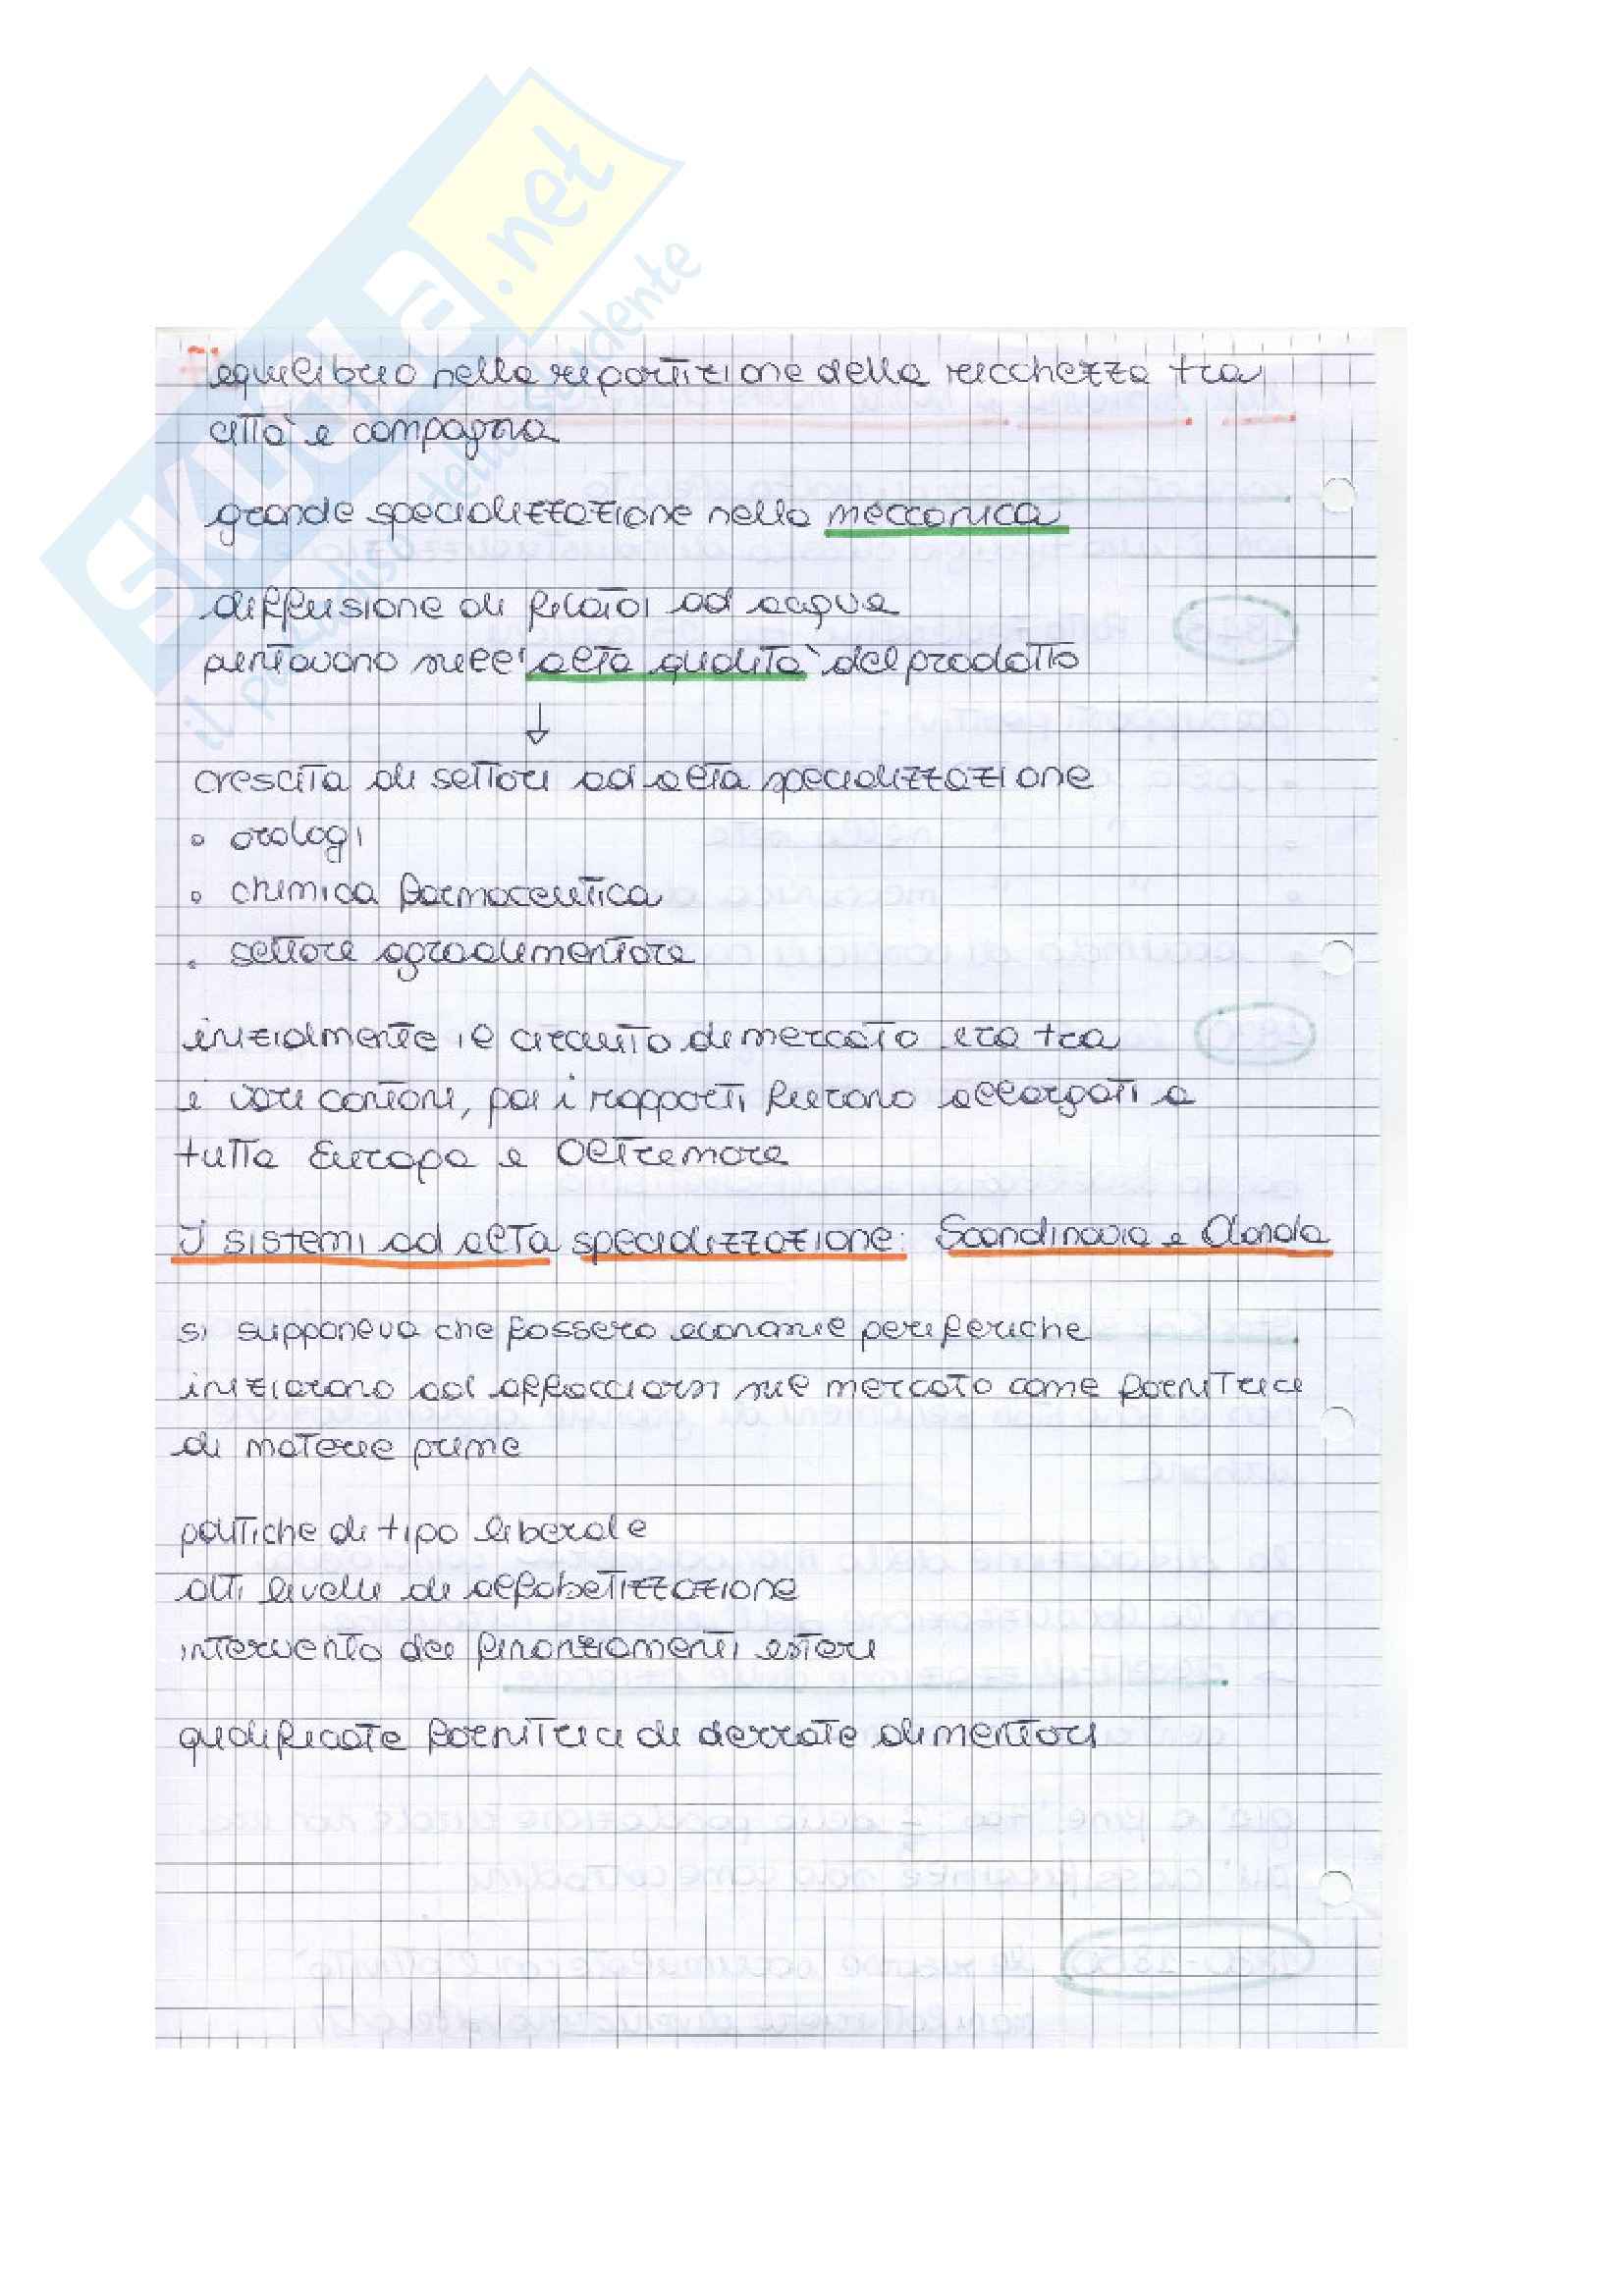 SKUOLA.net
il paradiso dello studente
equilibrio nella ripartizione della ricchezza tra
città e campagna
grande specializzazione nella meccanica
diffusione di filatoi ad acqua
puntavano sull'alta qualità del prodotto
↓
crescita di settori ad alta specializzazione
• orologi
• chimica farmaceutica
• settore agroalimentare
inizialmente il circuito di mercato era tra
i vari cantoni, poi i rapporti furono allargati a
tutta Europa e Oltremare
I sistemi ad alta specializzazione: Scandinavia e Olanda
si supponeva che fossero economie periferiche
iniziarono ad affacciarsi sul mercato come fornitrici
di materie prime
politiche di tipo liberale
alti livelli di alfabetizzazione
intervento dei finanziamenti esteri
qualificate fornitrici di derrate alimentari